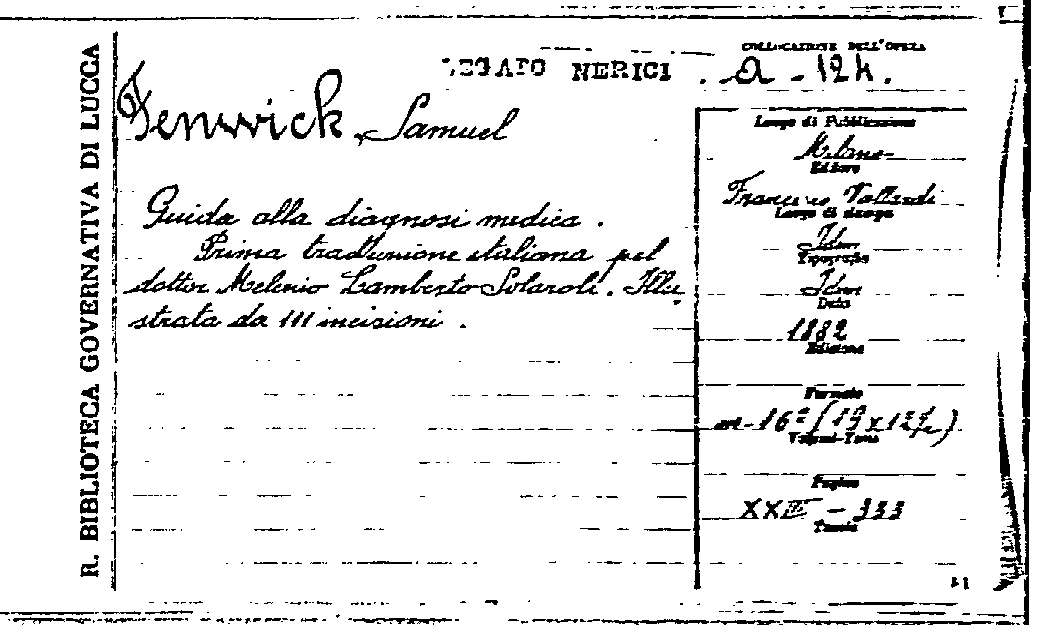 R. BIBLIOTECA GOVERNATIVA DI LUCCA
LEGATO NERICI
COLLOCAZIONE DELL'OPERA
a - 124.
Fenwick, Samuel
Guida alla diagnosi medica.
Prima traduzione italiana pel
dottor Melenio Lamberto Solaroli. Illu-
strata da 111 incisioni.
Luogo di Pubblicazione
Milano
Editore
Francesco Vallardi
Luogo di stampa
Idem
Tipografia
Idem
Data
1882
Edizione
Formato
16° (19 x 12½)
Volumi-Tomi
Pagine
XXIII - 333
Tavole